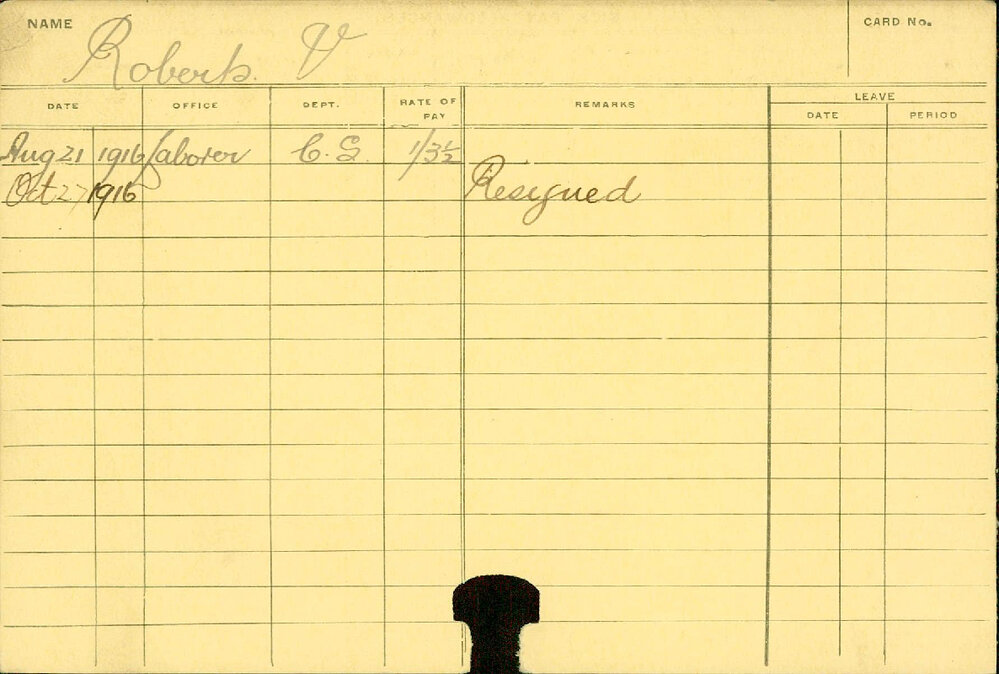 NAME Roberts. V CARD No.
DATE OFFICE DEPT. RATE OF PAY REMARKS LEAVE
DATE PERIOD
Aug 21 1916 Laborer C.S. 1/3½
Oct 27 1916 Resigned